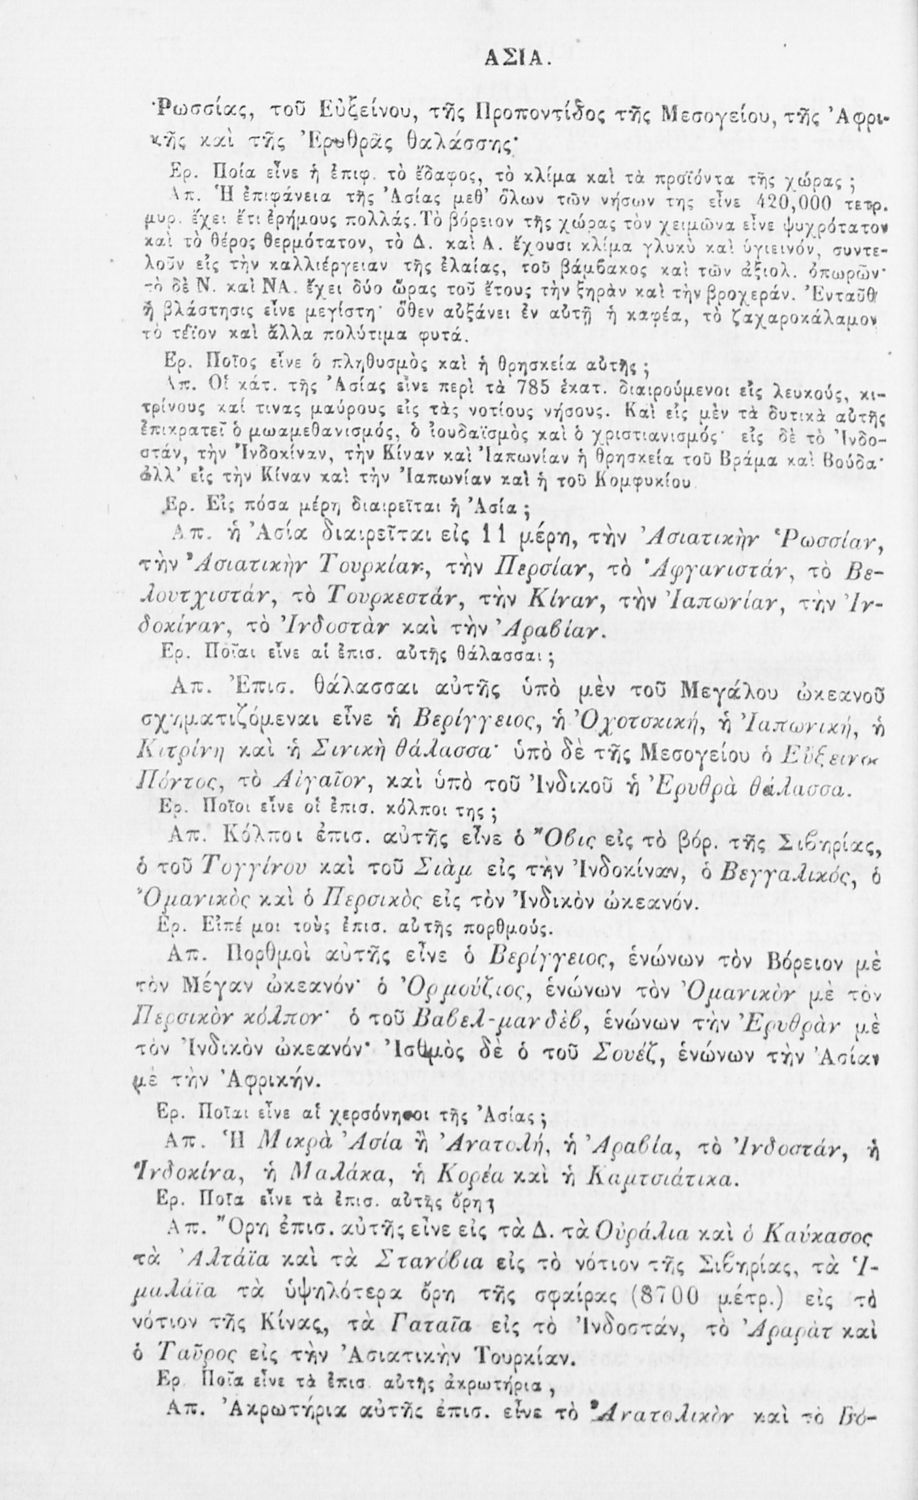 ΑΣΙΑ.
Ῥωσσίας, τοῦ Εὐξείνου, τῆς Προποντίδος τῆς Μεσογείου, τῆς Ἀφρι-
κῆς καὶ τῆς Ἐρυθρᾶς θαλάσσης·
Ερ. Ποία εἶνε ἡ ἐπιφ. τὸ ἔδαφος, τὸ κλίμα καὶ τὰ προϊόντα τῆς χώρας ;
Απ. Ἡ ἐπιφάνεια τῆς Ἀσίας μεθ' ὅλων τῶν νήσων της εἶνε 420,000 τετρ.
μυρ. ἔχει ἔτι ἐρήμους πολλάς. Τὸ βόρειον τῆς χώρας τὸν χειμῶνα εἶνε ψυχρότατον
καὶ τὸ θέρος θερμότατον, τὸ Δ. καὶ Α. ἔχουσι κλίμα γλυκὺ καὶ ὑγιεινόν, συντε-
λοῦν εἰς τὴν καλλιέργειαν τῆς ἐλαίας, τοῦ βάμβακος καὶ τῶν ἀξιολ. ὀπωρῶν·
τὸ δὲ Ν. καὶ ΝΑ. ἔχει δύο ὥρας τοῦ ἔτους τὴν ξηρὰν καὶ τὴν βροχεράν. Ἐνταῦθ'
ἡ βλάστησις εἶνε μεγίστη· ὅθεν αὐξάνει ἐν αὐτῇ ἡ καφέα, τὸ ζαχαροκάλαμον
τὸ τέϊον καὶ ἄλλα πολύτιμα φυτά.
Ερ. Ποῖος εἶνε ὁ πληθυσμὸς καὶ ἡ θρησκεία αὐτῆς ;
Απ. Οἱ κάτ. τῆς Ἀσίας εἶνε περὶ τὰ 785 ἑκατ. διαιρούμενοι εἰς λευκούς, κι-
τρίνους καί τινας μαύρους εἰς τὰς νοτίους νήσους. Καὶ εἰς μὲν τὰ δυτικὰ αὐτῆς
ἐπικρατεῖ ὁ μωαμεθανισμός, ὁ ἰουδαϊσμὸς καὶ ὁ χριστιανισμός· εἰς δὲ τὸ Ἰνδο-
στάν, τὴν Ἰνδοκίναν, τὴν Κίναν καὶ Ἰαπωνίαν ἡ θρησκεία τοῦ Βράμα καὶ Βούδα·
ἀλλ' εἰς τὴν Κίναν καὶ τὴν Ἰαπωνίαν καὶ ἡ τοῦ Κομφυκίου
Ερ. Εἰς πόσα μέρη διαιρεῖται ἡ Ἀσία ;
Απ. ἡ Ἀσία διαιρεῖται εἰς 11 μέρη, τὴν Ἀσιατικὴν Ῥωσσίαν,
τὴν Ἀσιατικὴν Τουρκίαν, τὴν Περσίαν, τὸ Ἀφγανιστάν, τὸ Βε-
λουτχιστάν, τὸ Τουρκεστάν, τὴν Κίναν, τὴν Ἰαπωνίαν, τὴν Ἰν-
δοκίναν, τὸ Ἰνδοστὰν καὶ τὴν Ἀραβίαν.
Ερ. Ποῖαι εἶνε αἱ ἐπισ. αὐτῆς θάλασσαι ;
Απ. Ἐπισ. θάλασσαι αὐτῆς ὑπὸ μὲν τοῦ Μεγάλου ὠκεανοῦ
σχηματιζόμεναι εἶνε ἡ Βερίγγειος, ἡ Ὀχοτσκική, ἡ Ἰαπωνική, ἡ
Κιτρίνη καὶ ἡ Σινικὴ θάλασσα· ὑπὸ δὲ τῆς Μεσογείου ὁ Εὔξεινος
Πόντος, τὸ Αἰγαῖον, καὶ ὑπὸ τοῦ Ἰνδικοῦ ἡ Ἐρυθρὰ θάλασσα.
Ερ. Ποῖοι εἶνε οἱ ἐπισ. κόλποι της ;
Απ. Κόλποι ἐπισ. αὐτῆς εἶνε ὁ Ὄβις εἰς τὸ βόρ. τῆς Σιβηρίας,
ὁ τοῦ Τογγίνου καὶ τοῦ Σιὰμ εἰς τὴν Ἰνδοκίναν, ὁ Βεγγαλικός, ὁ
Ὀμανικὸς καὶ ὁ Περσικὸς εἰς τὸν Ἰνδικὸν ὠκεανόν.
Ερ. Εἰπέ μοι τοὺς ἐπισ. αὐτῆς πορθμούς.
Απ. Πορθμοὶ αὐτῆς εἶνε ὁ Βερίγγειος, ἑνώνων τὸν Βόρειον μὲ
τὸν Μέγαν ὠκεανόν· ὁ Ὀρμούζιος, ἑνώνων τὸν Ὀμανικὸν μὲ τὸν
Περσικὸν κόλπον· ὁ τοῦ Βαβελ-μανδέβ, ἑνώνων τὴν Ἐρυθρὰν μὲ
τὸν Ἰνδικὸν ὠκεανόν· Ἰσθμὸς δὲ ὁ τοῦ Σουέζ, ἑνώνων τὴν Ἀσίαν
μὲ τὴν Ἀφρικήν.
Ερ. Ποῖαι εἶνε αἱ χερσόνησοι τῆς Ἀσίας ;
Απ. Ἡ Μικρὰ Ἀσία ἢ Ἀνατολή, ἡ Ἀραβία, τὸ Ἰνδοστάν, ἡ
Ἰνδοκίνα, ἡ Μαλάκα, ἡ Κορέα καὶ ἡ Καμτσιάτικα.
Ερ. Ποῖα εἶνε τὰ ἐπισ. αὐτῆς ὄρη ;
Απ. Ὄρη ἐπισ. αὐτῆς εἶνε εἰς τὰ Δ. τὰ Οὐράλια καὶ ὁ Καύκασος
τὰ Ἀλτάϊα καὶ τὰ Στανόβια εἰς τὸ νότιον τῆς Σιβηρίας, τὰ Ἱ-
μαλάϊα τὰ ὑψηλότερα ὄρη τῆς σφαίρας (8700 μέτρ.) εἰς τὸ
νότιον τῆς Κίνας, τὰ Γαταῖα εἰς τὸ Ἰνδοστάν, τὸ Ἀραρὰτ καὶ
ὁ Ταῦρος εἰς τὴν Ἀσιατικὴν Τουρκίαν.
Ερ. Ποῖα εἶνε τὰ ἐπισ. αὐτῆς ἀκρωτήρια ,
Απ. Ἀκρωτήρια αὐτῆς ἐπισ. εἶνε τὸ Ἀνατολικὸν καὶ τὸ Βό-